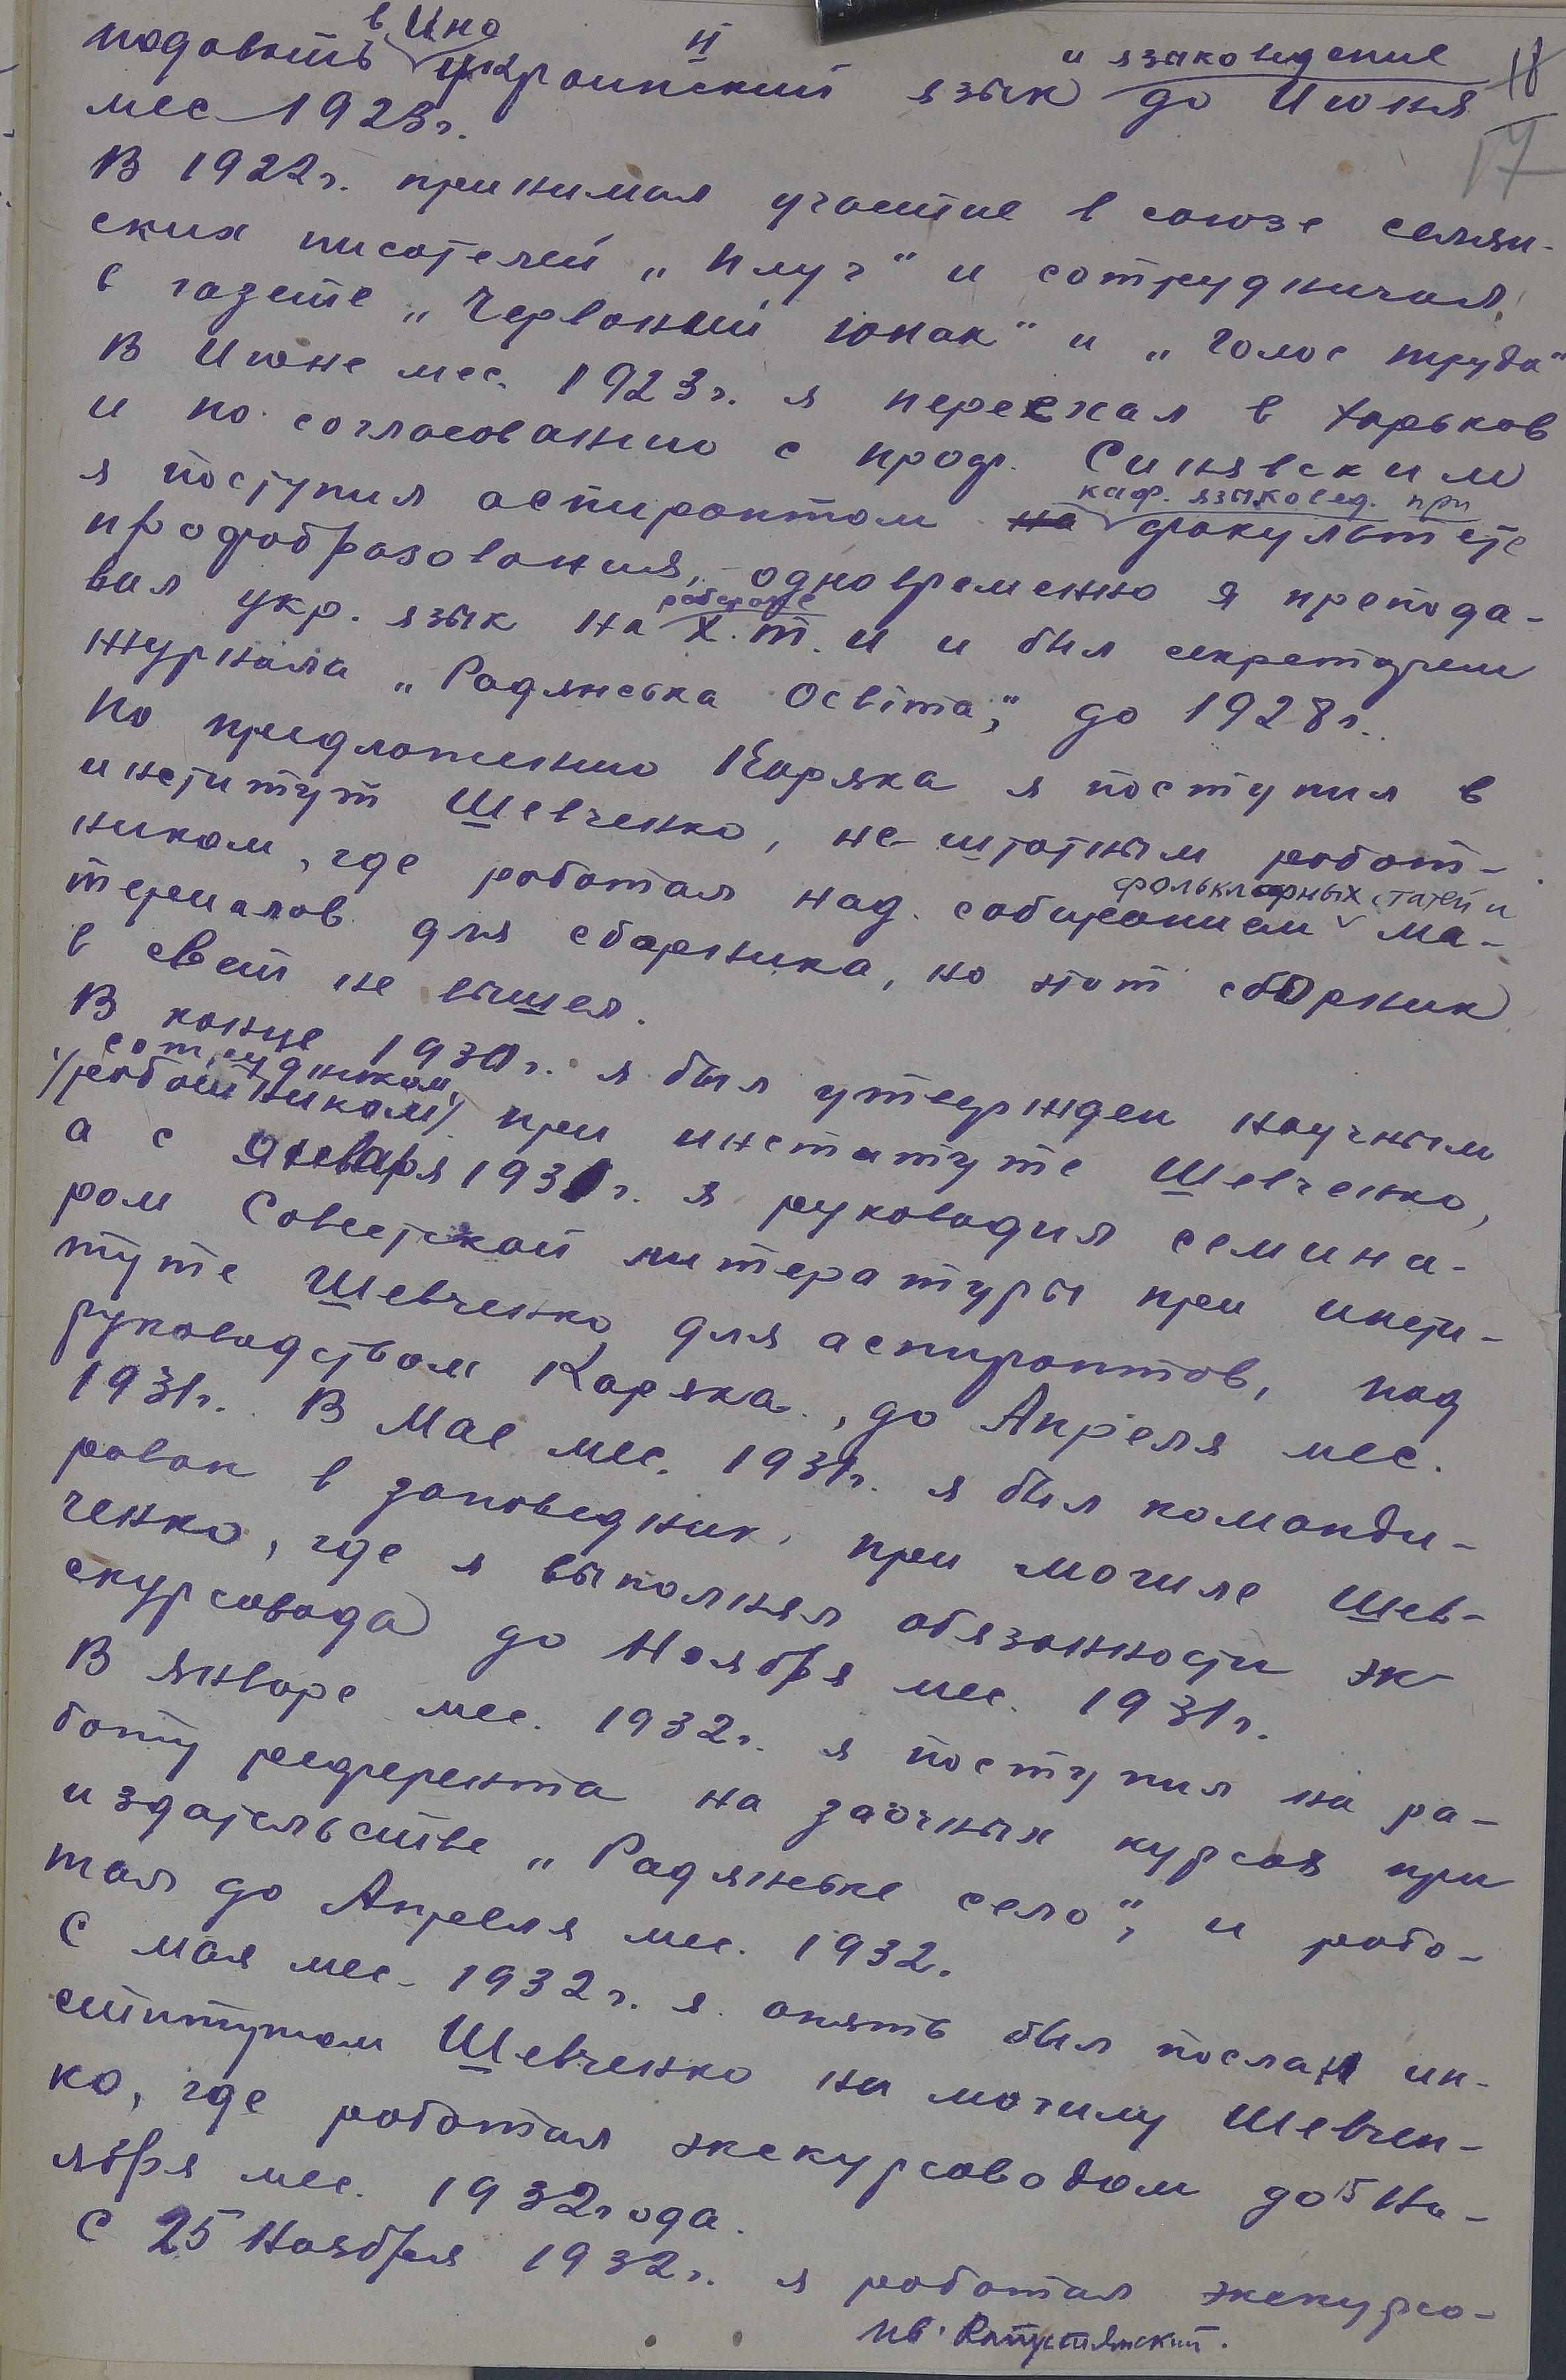 в Ино и языковедение 18
подовать украинский язык до Июня
мес 1923г. 17
В 1922г. принимал участие в союзе селян-
ских писателей „Плуг" и сотрудничал
в газете „Червоний юнак" и „Голос труда"
В Июне мес. 1923г. я переехал в Харьков
и по согласованию с проф. Синявским
я поступил аспирантом на каф. языковед. при факультете
профобразования, одновременно я препода-
вал укр. язык на рабфаке Х.т.и и был секретарем
журнала „Радянська Освіта", до 1928г.
По предложению Коряка я поступил в
институт Шевченко, не штатным работ-
ником, где работал над собиранием фольклорных статей и ма-
териалов для сборника, но этот сборник
в свет не вышел.
В конце 1930г. я был утвержден научным
сотрудником
/работником/ при институте Шевченко,
а с Января 1931г. я руководил семина-
ром Советской литературы при инсти-
туте Шевченко для аспирантов, под
руководством Коряка, до Апреля мес.
1931г. В Мае мес. 1931г. я был команди-
рован в заповедник при могиле Шев-
ченко, где я выполнял обязанности эк-
скурсовода до Ноября мес. 1931г.
В Январе мес. 1932г. я поступил на ра-
боту референта на заочных курсах при
издательстве „Радянське село", и рабо-
тал до Апреля мес. 1932.
С мая мес. 1932г. я опять был послан ин-
ститутом Шевченко на могилу Шевчен-
ко, где работал экскурсоводом до 15 Но-
ября мес. 1932года.
С 25 Ноября 1932г. я работал экскурсо-
Ив. Капустянский.